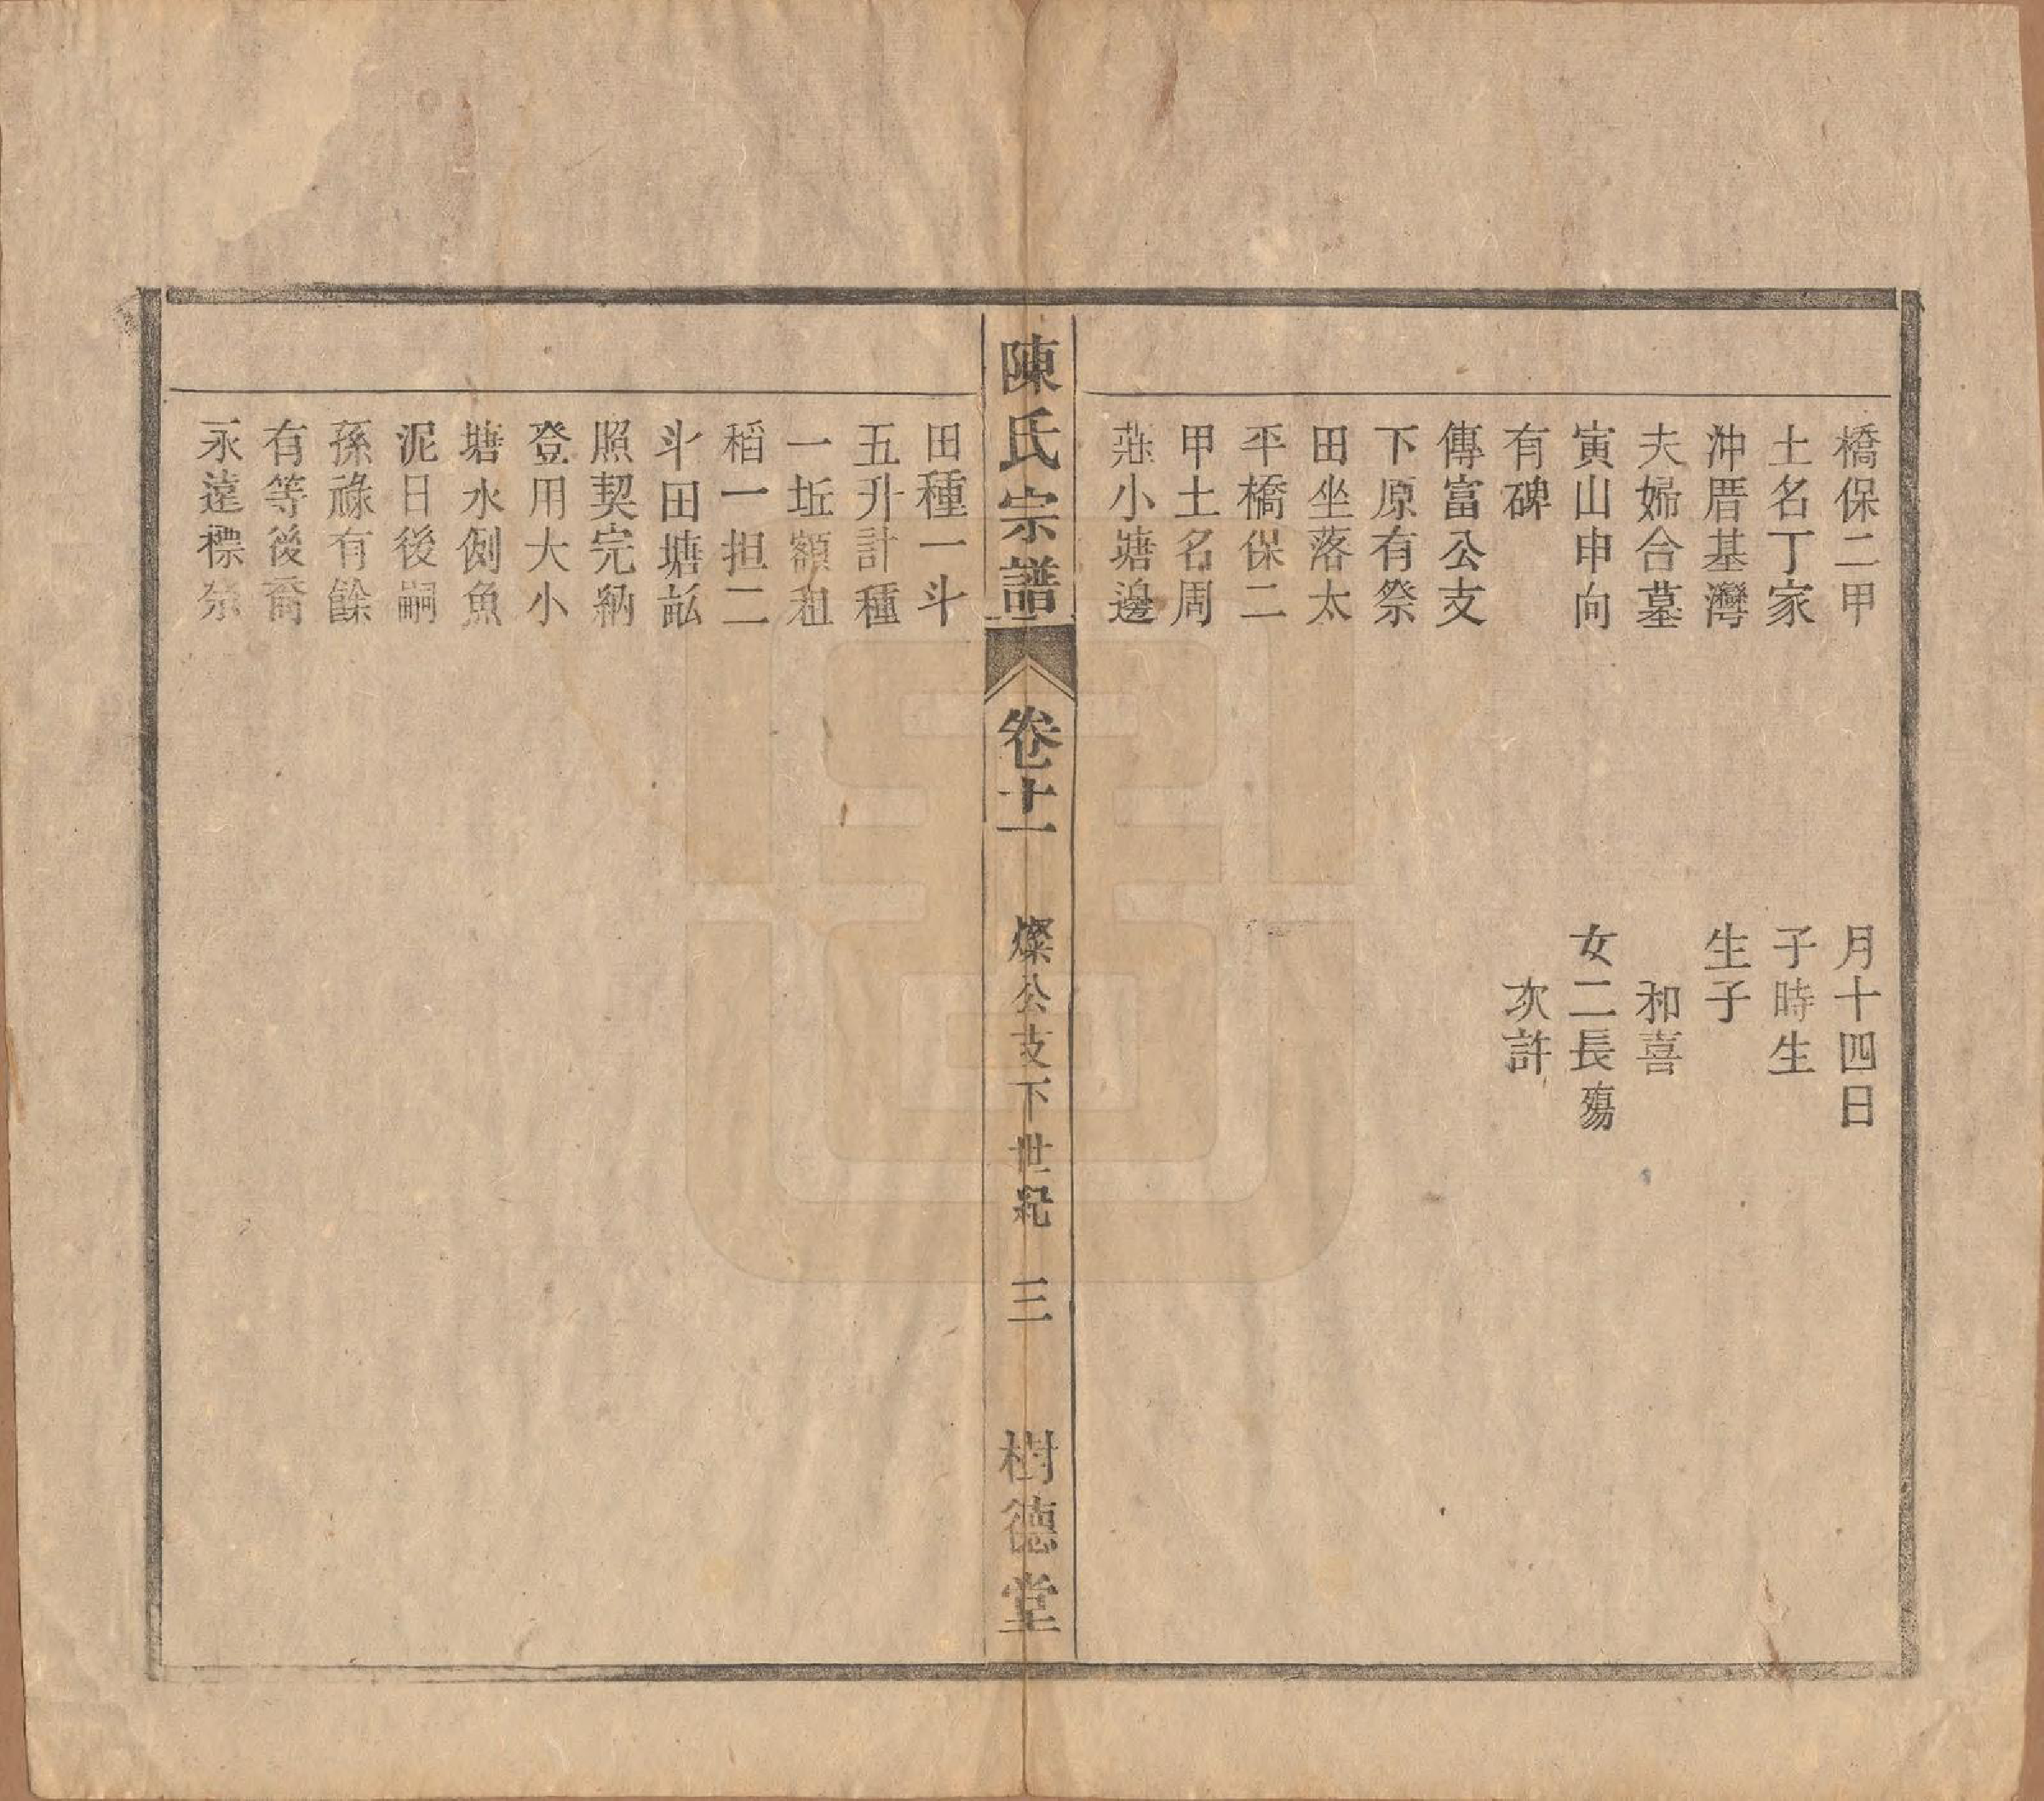 橋保二甲
土名丁家
沖厝基灣
夫婦合墓
寅山申向
有碑
傳富公支
下原有祭
田坐落太
平橋保二
甲土名周
小塘邊
月十四日
子時生
生子
和喜
女二長殤
次許
陳氏宗譜
卷十一
燦公支下世紀
三
樹德堂
田種一斗
五升計種
一坵額租
稻一担二
斗田塘畆
照契完納
登用大小
塘水例魚
泥日後嗣
孫祿有餘
有等後裔
永遠標祭